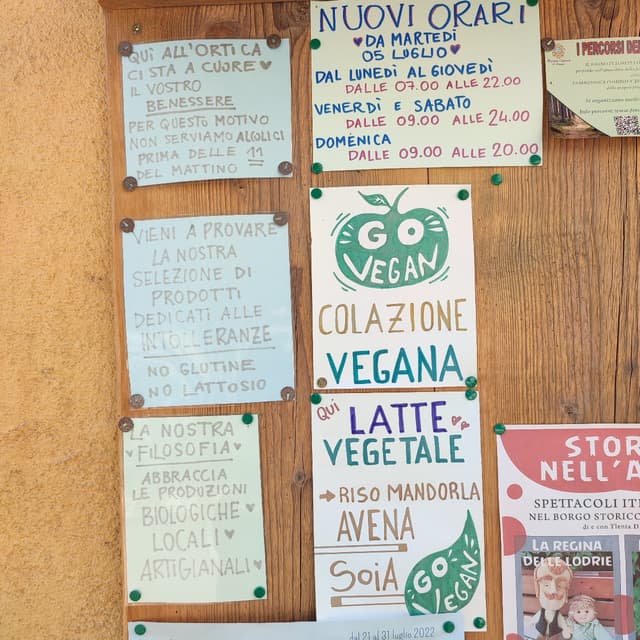 QUI ALL'ORTICA
CI STA A CUORE
IL VOSTRO
BENESSERE
PER QUESTO MOTIVO
NON SERVIAMO ALCOLICI
PRIMA DELLE 11
DEL MATTINO
NUOVI ORARI
DA MARTEDÌ
05 LUGLIO
DAL LUNEDÌ AL GIOVEDÌ
DALLE 07.00 ALLE 22.00
VENERDÌ E SABATO
DALLE 09.00 ALLE 24.00
DOMENICA
DALLE 09.00 ALLE 20.00
I PERCORSI DE
VIENI A PROVARE
LA NOSTRA
SELEZIONE DI
PRODOTTI
DEDICATI ALLE
INTOLLERANZE
NO GLUTINE
NO LATTOSIO
GO
VEGAN
COLAZIONE
VEGANA
LA NOSTRA
FILOSOFIA
ABBRACCIA
LE PRODUZIONI
BIOLOGICHE
LOCALI
ARTIGIANALI
QUI
LATTE
VEGETALE
→ RISO MANDORLA
AVENA
SOIA
GO
VEGAN
STOR
NELL'A
SPETTACOLI ITI
NEL BORGO STORICO
di e con Tlenia D
LA REGINA
DELLE LODRIE
dal 21 al 31 luglio 2022